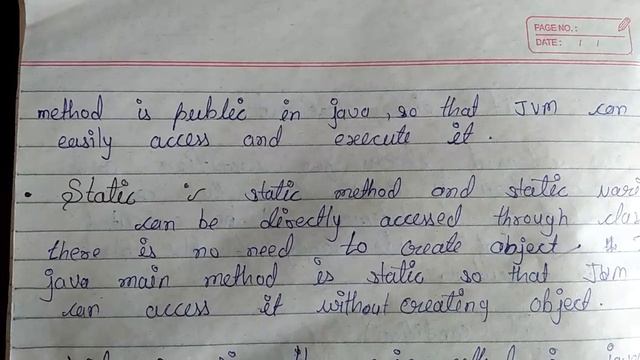 PAGE NO.:
DATE: / /
method is public in java, so that JVM can
easily access and execute it.
• Static :- static method and static vari
can be directly accessed through clas
there is no need to create object.
java main method is static so that JVM
can access it without creating object.